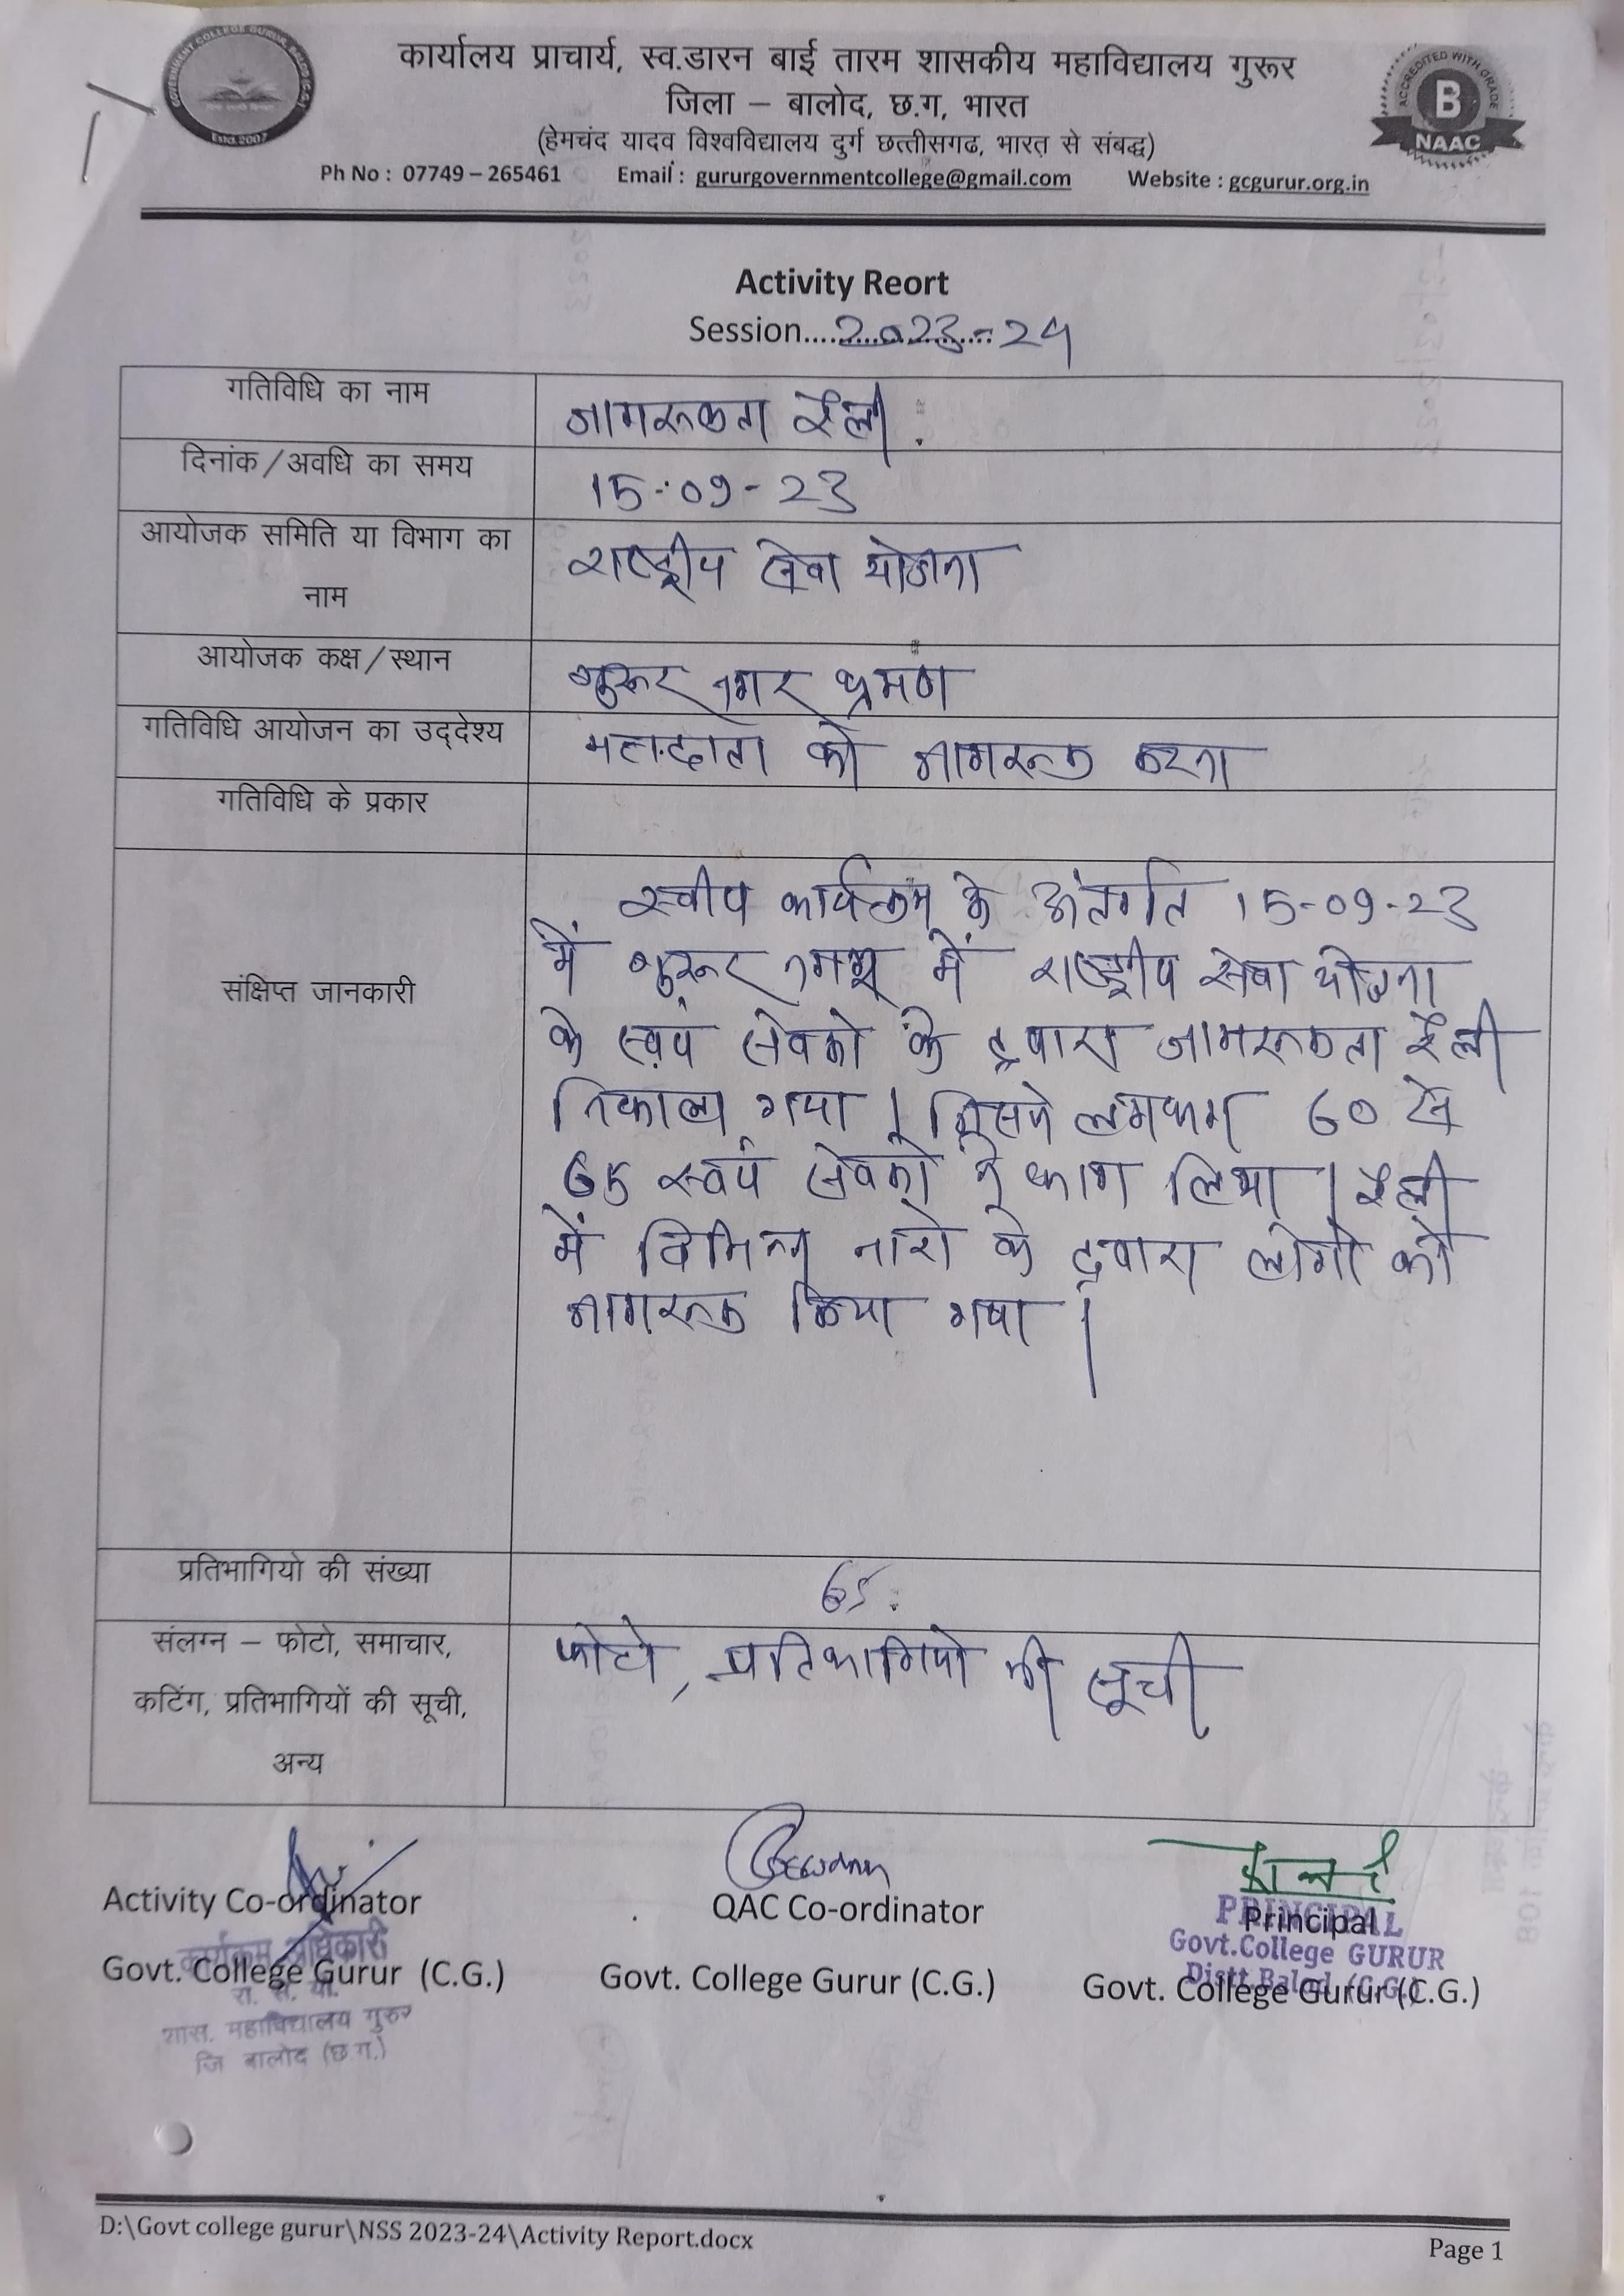 कार्यालय प्राचार्य, स्व.डारन बाई तारम शासकीय महाविद्यालय गुरूर
जिला – बालोद, छ.ग, भारत
(हेमचंद यादव विश्वविद्यालय दुर्ग छत्तीसगढ, भारत से संबद्ध)
Ph No : 07749 – 265461 Email : gururgovernmentcollege@gmail.com Website : gcgurur.org.in
ACCREDITED WITH GRADE
B
NAAC
Activity Reort
Session....2023-24
गतिविधि का नाम जागरूकता रैली
दिनांक/अवधि का समय 15-09-23
आयोजक समिति या विभाग का
नाम
राष्ट्रीय सेवा योजना
आयोजक कक्ष/स्थान गुरूर नगर भ्रमण
गतिविधि आयोजन का उद्देश्य मतदाता को जागरूक करना
गतिविधि के प्रकार
संक्षिप्त जानकारी
स्वीप कार्यक्रम के अंतर्गत 15-09-23
में गुरूर नगर में राष्ट्रीय सेवा योजना
के स्वयं सेवको के द्वारा जागरूकता रैली
निकाला गया। जिसमे लगभग 60 से
65 स्वयं सेवको ने भाग लिया। रैली
में विभिन्न नारो के द्वारा लोगो को
जागरूक किया गया।
प्रतिभागियो की संख्या 65
संलग्न – फोटो, समाचार,
कटिंग, प्रतिभागियों की सूची,
अन्य
फोटो, प्रतिभागियो की सूची
Activity Co-ordinator QAC Co-ordinator Principal
Govt. College Gurur (C.G.) Govt. College Gurur (C.G.) Govt. College Gurur (C.G.)
कार्यक्रम अधिकारी
रा. से. यो.
शास. महाविद्यालय गुरुर
जि बालोद (छ.ग.)
PRINCIPAL
Govt.College GURUR
Distt.Balod (C.G.)
D:\Govt college gurur\NSS 2023-24\Activity Report.docx
Page 1